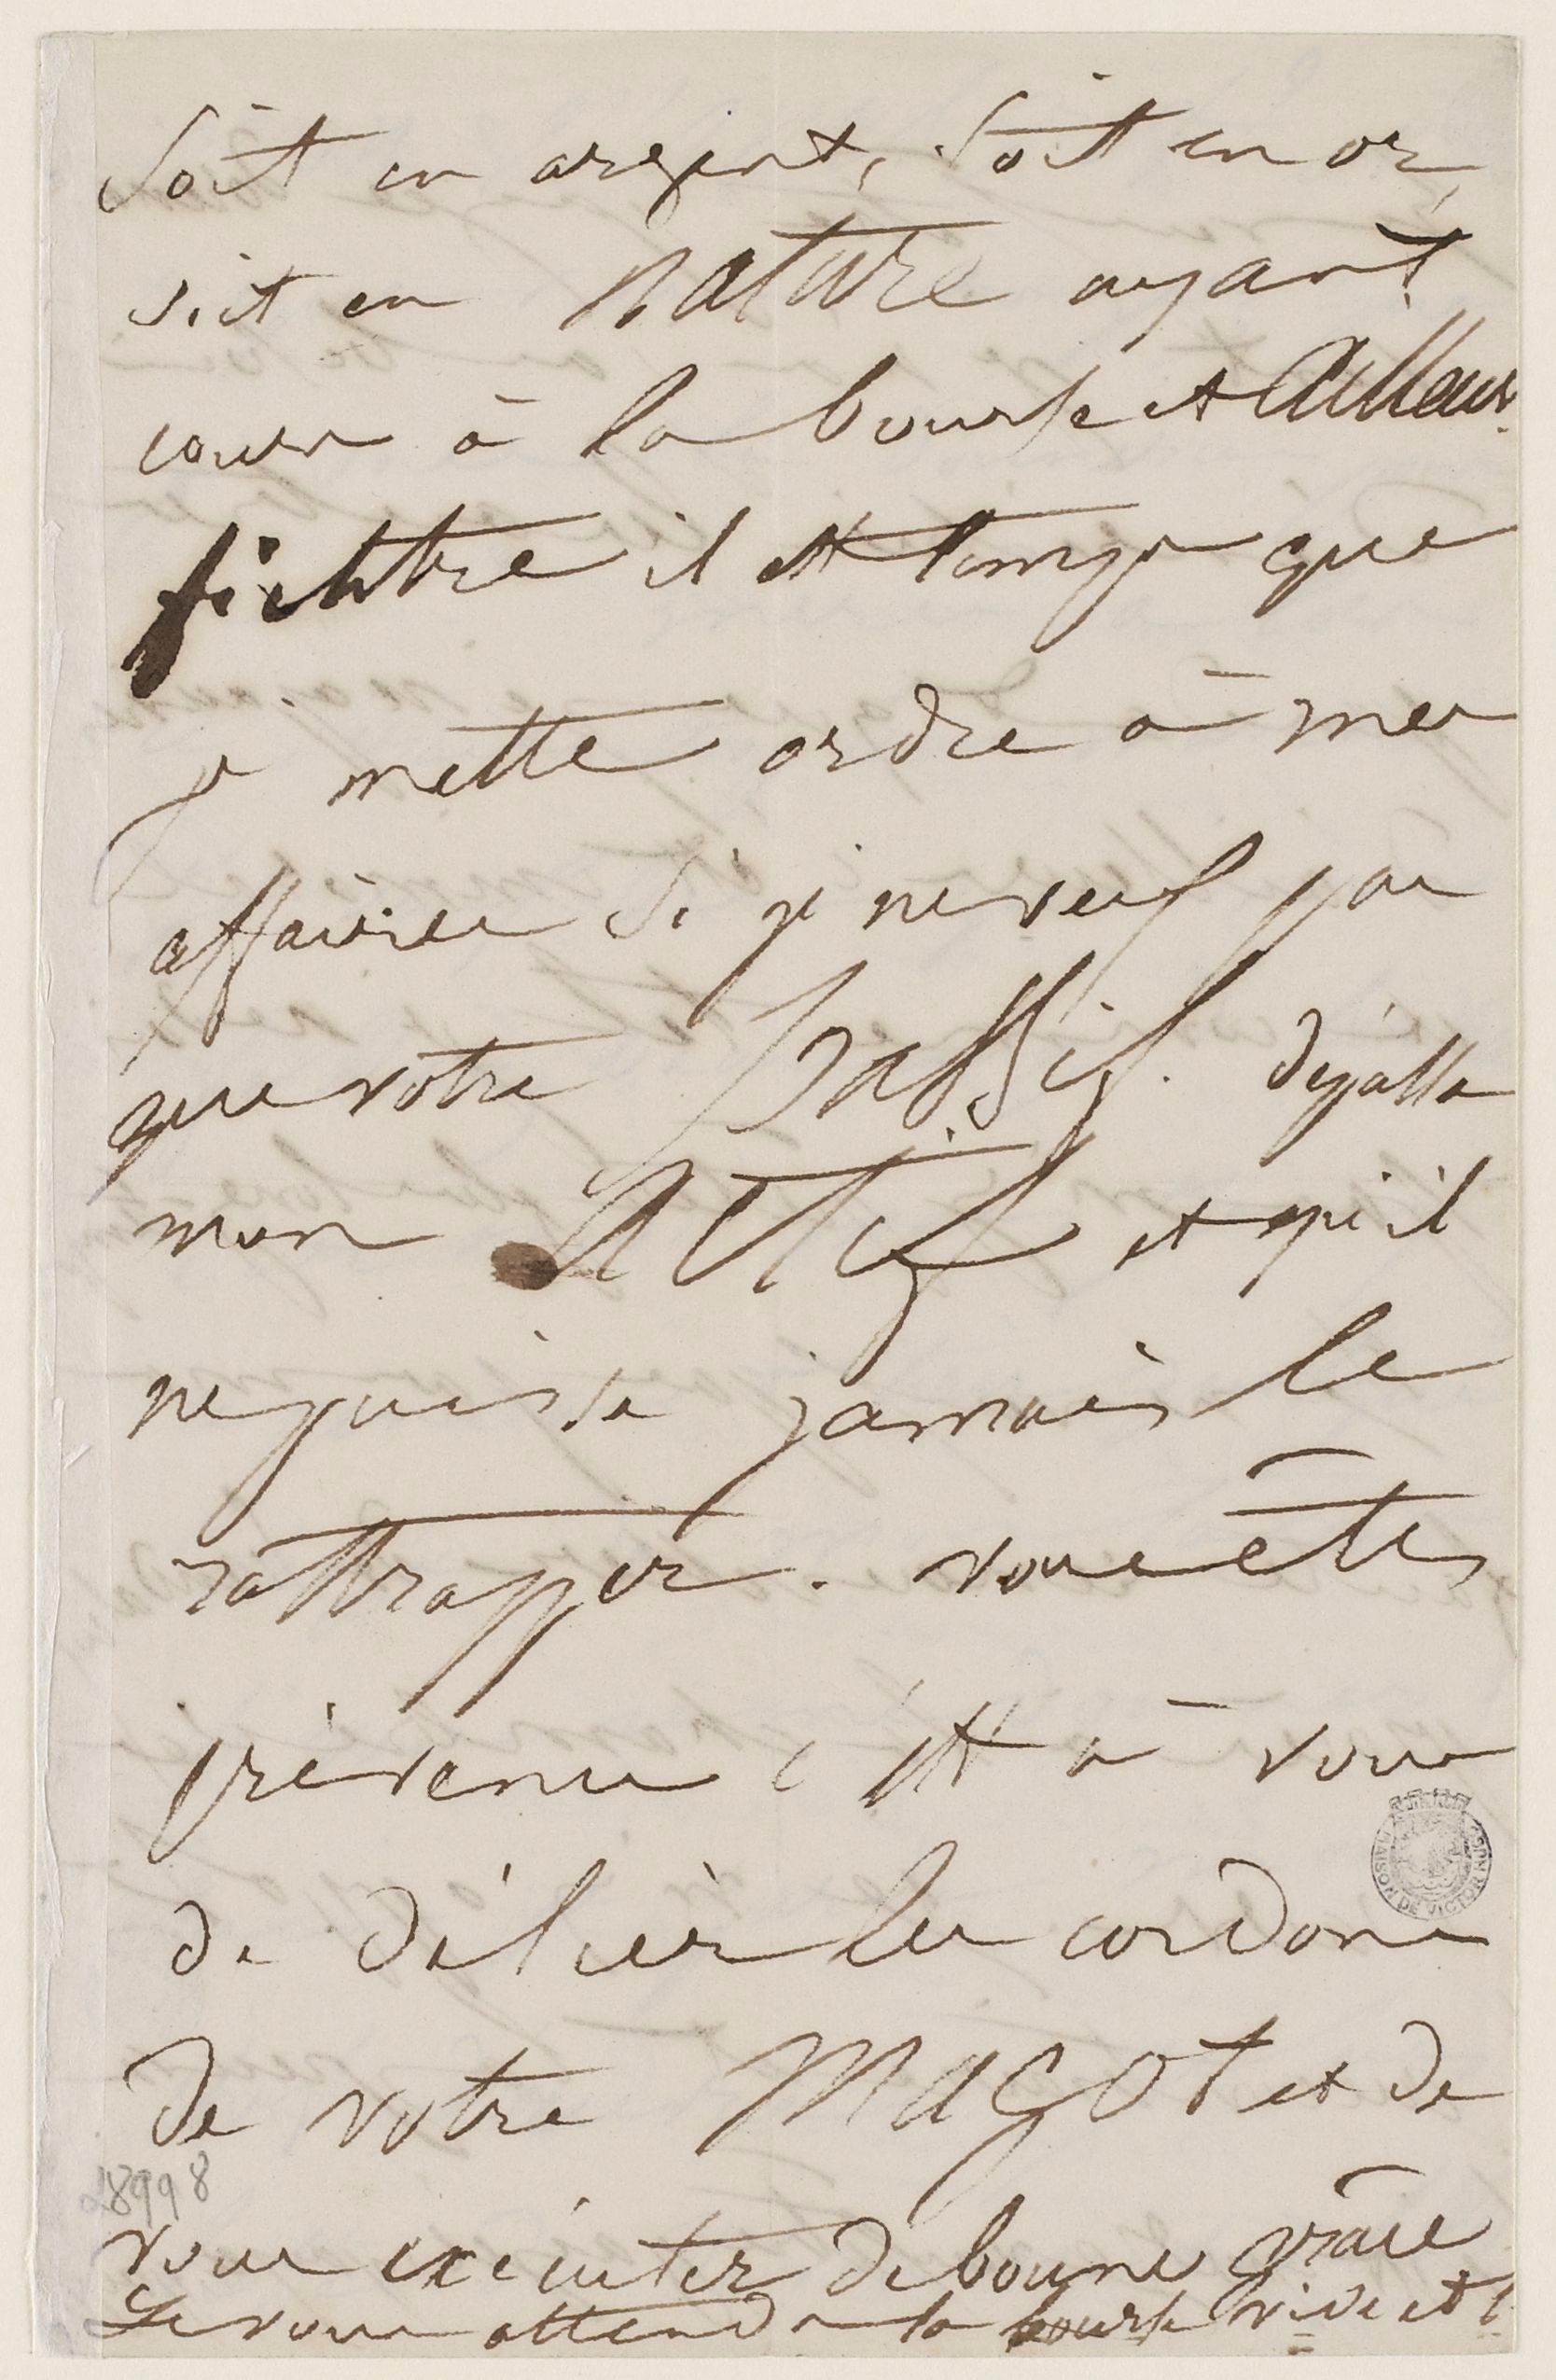 Soit en argent, soit en or,
soit en nature ayant
cours à la bourse et ailleurs.
fichtre il est temps que
je mette ordre à mes
affaires si je ne veux pas
que votre Passif dépasse
mon Actif et qu'il
ne puisse jamais le
rattrapper. vous êtes
prévenu c'est à vous
de délier les cordons
de votre MAGOT et de
28998
vous exécuter de bonne grâce
Je vous attends la bourse vide et
MAISON DE VICTOR HUGO